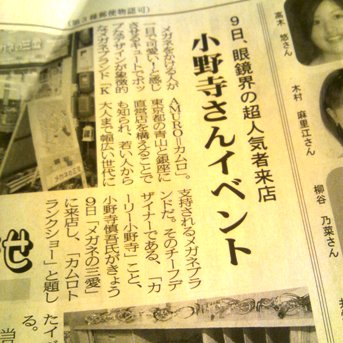 (第3種郵便物認可)
9日、眼鏡界の超人気者来店
小野寺さんイベント
メガネをかける人が
一目で可愛い！と感じ
させるキュートでポッ
プなデザインが象徴的
なメガネブランド「K
AMURO=カムロ」。
東京都の青山と銀座に
直営店を構えることで
も知られ、若い人から
大人まで幅広い世代に
支持されるメガネブラ
ンドだ。そのチーフデ
ザイナーである、「カ
ーリー小野寺」こと、
小野寺慎吾氏がきょう
9日「メガネの三愛」
に来店し、「カムロト
ランクショー」と題し
たイ
る。
当
高木 悠さん
木村 麻里江さん
柳谷 乃菜さん
メガネの三愛